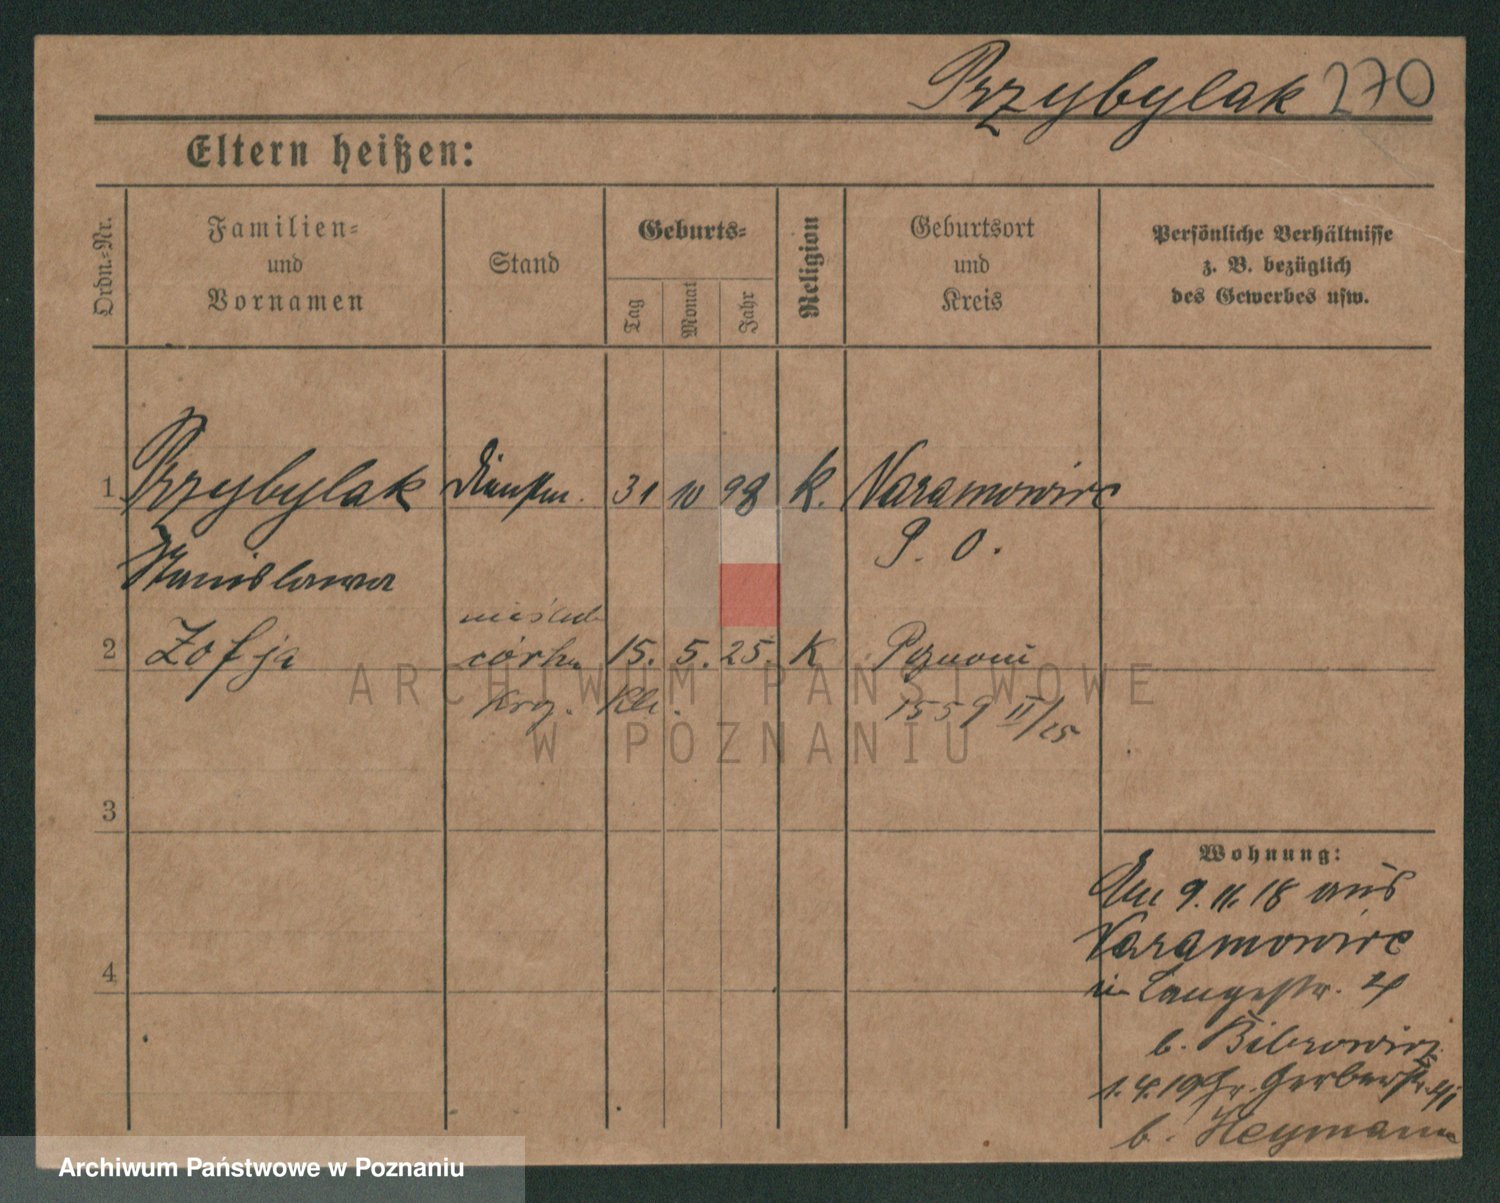 Przybylak 270
Eltern heißen:
Ordn.-Nr.
Familien-
und
Vornamen
Stand
Geburts-
Tag
Monat
Jahr
Religion
Geburtsort
und
Kreis
Persönliche Verhältnisse
z. B. bezüglich
des Gewerbes usw.
1 Przybylak 31 10 98 K. Naramowice
P. O.
Stanislawa
2 Zofja córka 15. 5. 25. K Poznań
1559 II/25
ARCHIWUM PAŃSTWOWE
W POZNANIU
3
4
Wohnung:
Am 9.11.18 aus
Naramowice
in Langestr. 4
b. Bibrowicz
1.4.19 Gr. Gerberstr.
b. Heymann
Archiwum Państwowe w Poznaniu